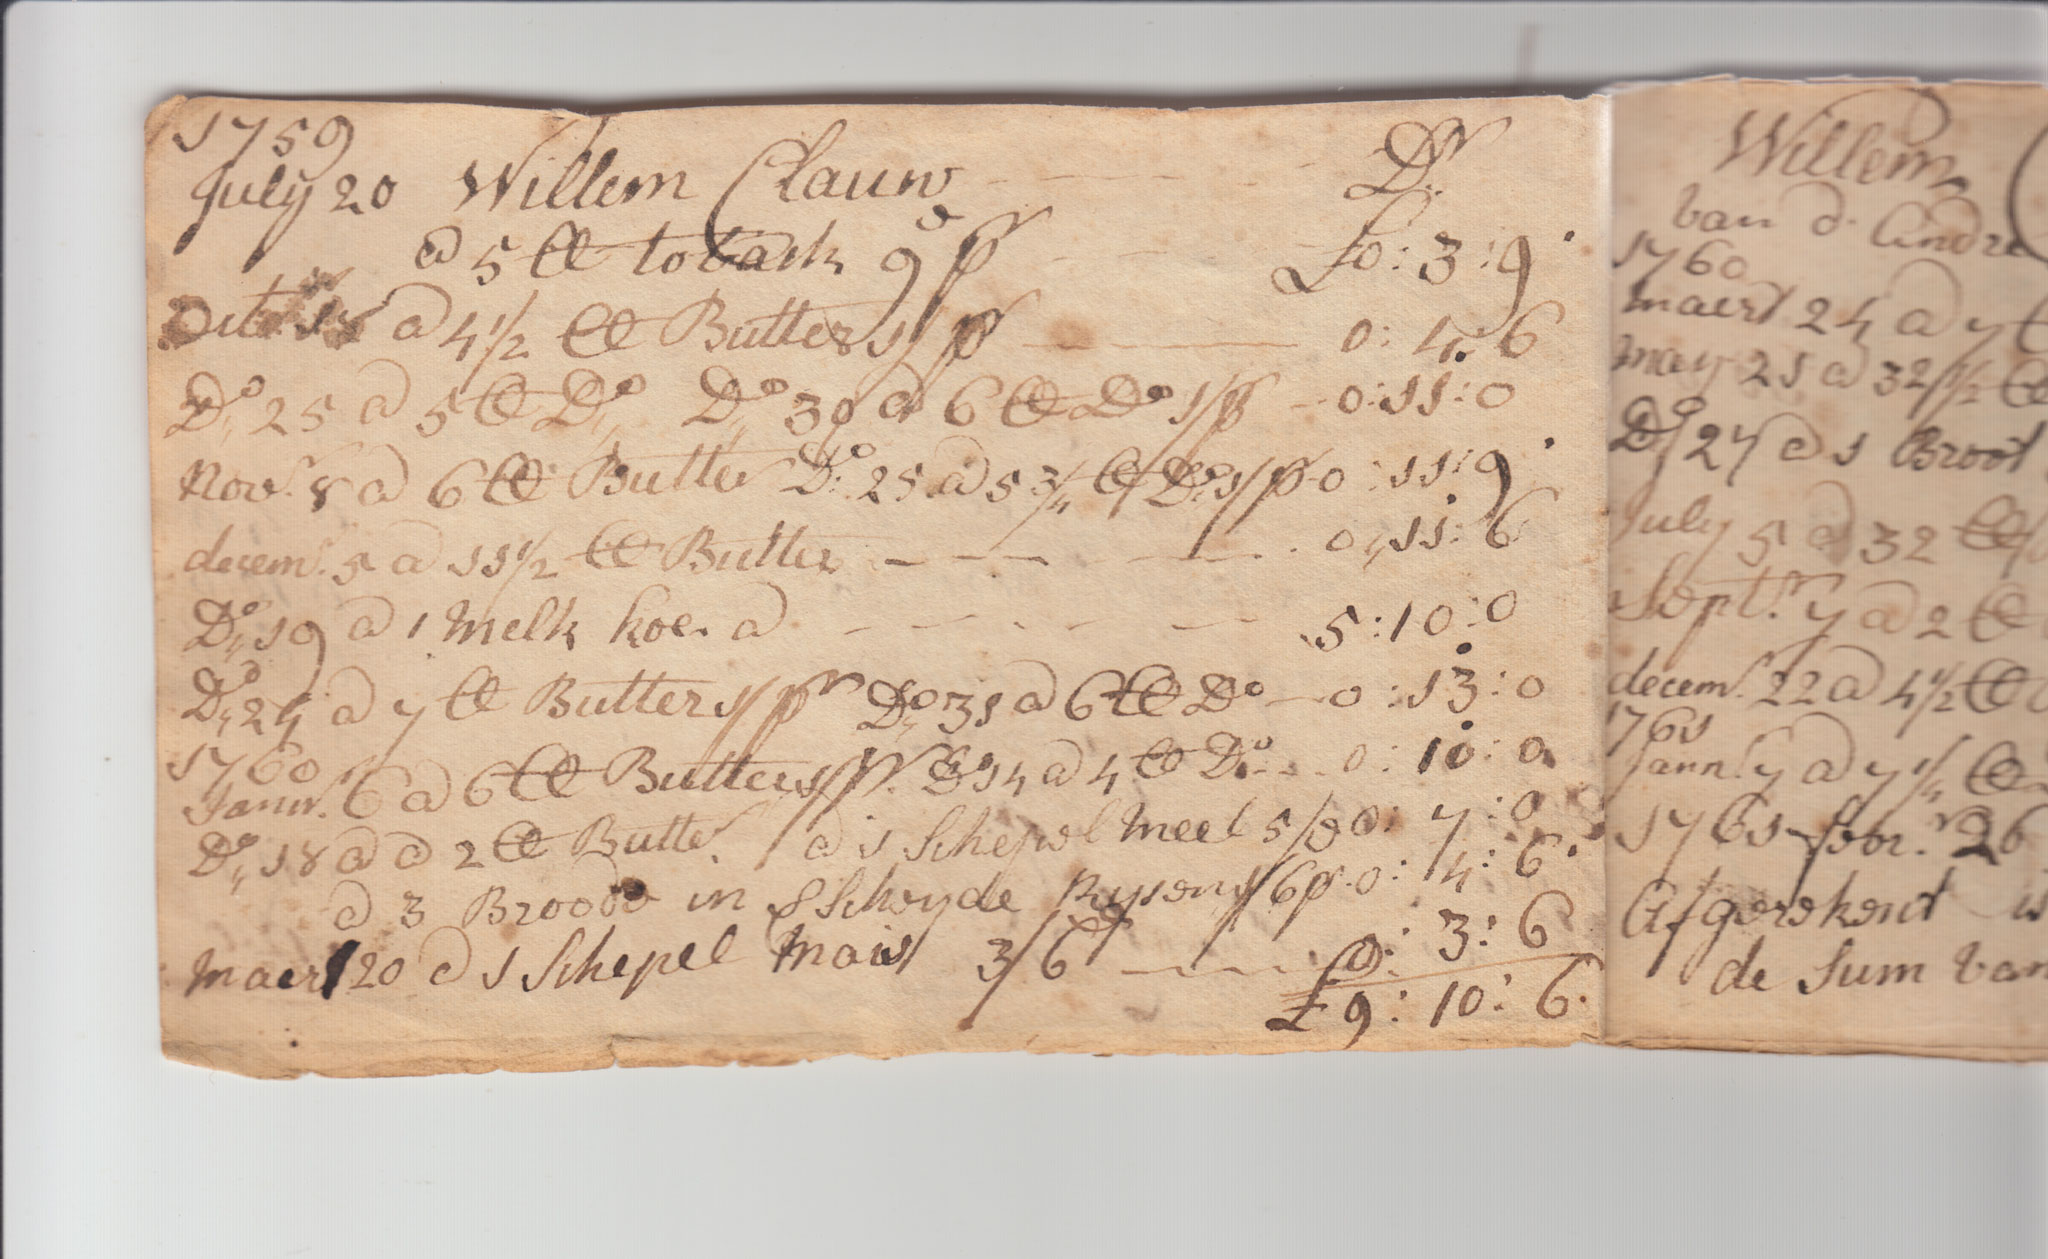 1759
July 20 Willem Clauw Dr
@ 5 lb toback 9d pr £0:3:9
Octo 18 @ 4½ lb Butter 1/ pr 0:4:6
Do 25 @ 5 lb Do Do 30 @ 6 lb Do 1/ pr 0:11:0
Novr 8 @ 6 lb Butter Do 25 @ 5¾ lb Do 1/ pr 0:11:9
decemr 5 @ 11½ lb Butter 0:11:6
Do 19 @ 1 Melk koe @ 5:10:0
Do 24 @ 7 lb Butter 1/ pr Do 31 @ 6 lb Do 0:13:0
1760
Janr. 6 @ 6 lb Butter 1/ pr. Do 14 @ 4 lb Do 0:10:0
Do 18 @ @ 2 lb Butter @ 1 Schepel Meel 5/ 0:7:0
@ 3 Broode in 1/6 p 0:4:6
Maert 20 @ 1 Schepel Mais 3/6 0:3:6
£9:10:6
Willem
van d. Andre
1760
Maert 24 @ 7 lb
May 21 @ 32½ lb
Do 27 @ 1 Broot
July 5 @ 32 lb
Septr 7 @ 2 lb
decemr. 22 @ 4½ lb
1761
Janr. 7 @ 7¼ lb
1761 febr. 26
Afgerekent is
de Sum van